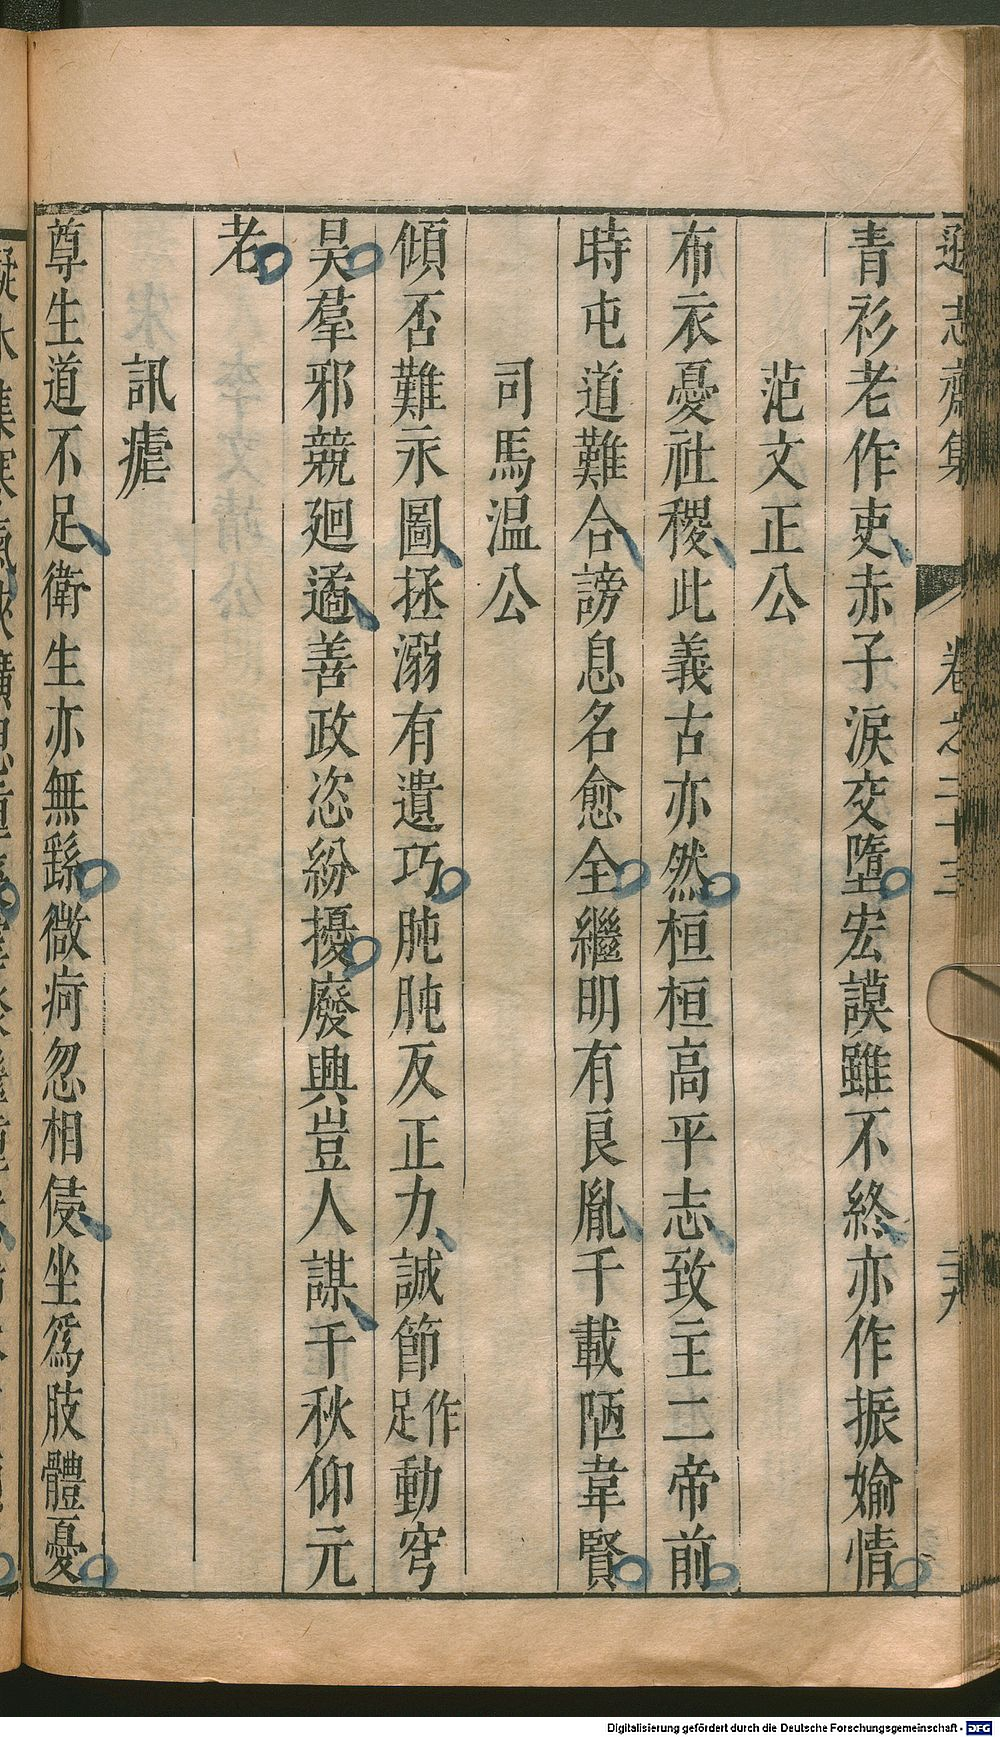 遜志齋集
卷之二十三
二九
青衫老作吏赤子淚交墮宏謨雖不終亦作振媮情
范文正公
布衣憂社稷此義古亦然桓桓高平志致主二帝前
時屯道難合謗息名愈全繼明有良胤千載陋韋賢
司馬温公
傾否難爲圖拯溺有遺巧肫肫反正力誠節足作動穹
昊羣邪競迴遹善政恣紛擾廢興豈人謀千秋仰元
老
訊瘧
尊生道不足衛生亦無繇微疴忽相侵坐爲肢體憂
Digitalisierung gefördert durch die Deutsche Forschungsgemeinschaft - DFG